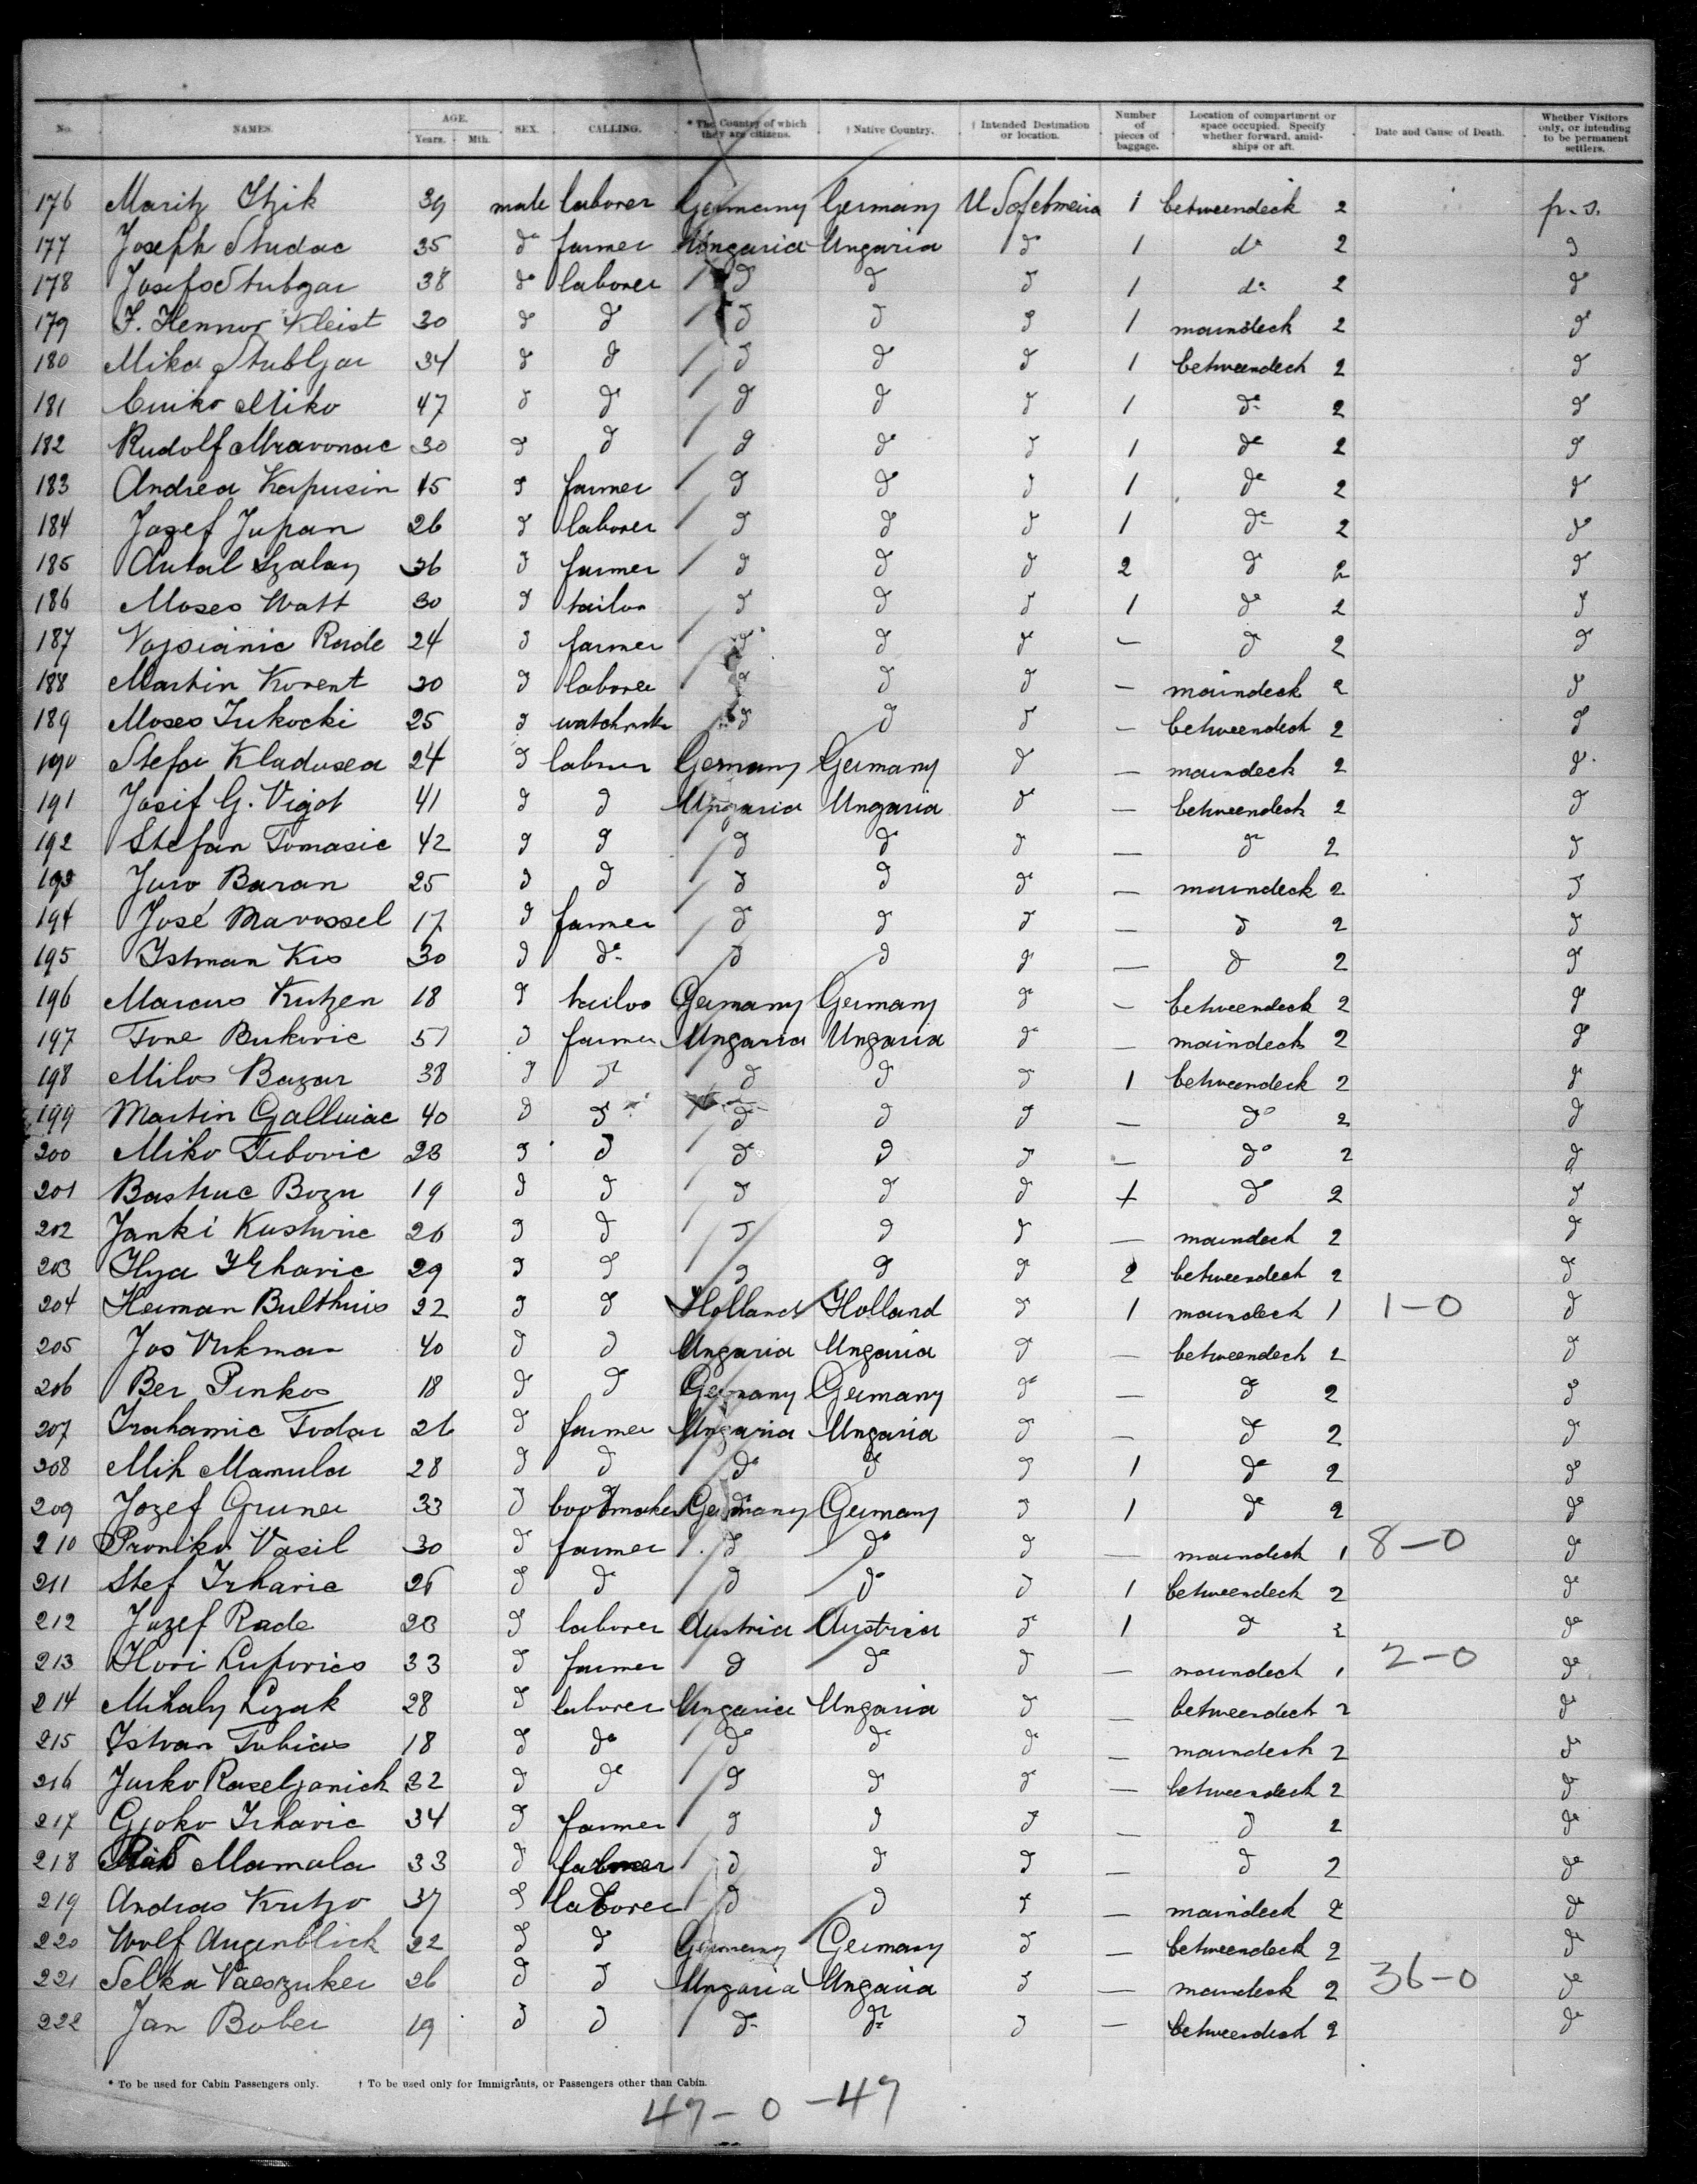 No. NAMES. AGE. Years. Mth. SEX. CALLING. * The Country of which they are citizens. † Native Country. † Intended Destination or location. Number of pieces of baggage. Location of compartment or space occupied. Specify whether forward, amidships or aft. Date and Cause of Death. Whether Visitors only, or intending to be permanent settlers.
176 Moritz Itzik 39 male laborer Germany Germany U S of America 1 betweendeck 2 p.s.
177 Joseph Studac 35 do farmer Ungaria Ungaria do 1 do 2 do
178 Josef Stubgar 38 do laborer do do do 1 do 2 do
179 F. Hennor Kleist 30 do do do do do 1 maindeck 2 do
180 Miko Stubljar 34 do do do do do 1 betweendeck 2 do
181 Miko 47 do do do do do 1 do 2 do
182 Rudolf Mravonac 30 do do do do do 1 do 2 do
183 Andrea Kapusin 45 do farmer do do do 1 do 2 do
184 Jozef Jupan 26 do laborer do do do 1 do 2 do
185 Antal Szalay 36 do farmer do do do 2 do 2 do
186 Moses Watt 30 do tailor do do do 1 do 2 do
187 Rade 24 do farmer do do do — do 2 do
188 Martin Korent 30 do laborer do do do — maindeck 2 do
189 Moses Tukocki 25 do do do do — betweendeck 2 do
190 Stefan Kladusea 24 do laborer Germany Germany do — maindeck 2 do
191 Josif G. Vigot 41 do do Ungaria Ungaria do — betweendeck 2 do
192 Stefan Tomasic 42 do do do do do — do 2 do
193 Juro Baran 25 do do do do do — maindeck 2 do
194 José Mavossel 17 do farmer do do do — do 2 do
195 Istman Kis 30 do do do do do — do 2 do
196 Marcus Kutzen 18 do tailor Germany Germany do — betweendeck 2 do
197 Tone Bukovic 51 do farmer Ungaria Ungaria do — maindeck 2 do
198 Milos Bazar 38 do do do do do 1 betweendeck 2 do
199 Martin 40 do do do do do — do 2 do
200 Miko Tibovic 23 do do do do do — do 2 do
201 Bastuc Bozu 19 do do do do do do 2 do
202 Janki 26 do do do do do — maindeck 2 do
203 Ilya 29 do do do do do 2 betweendeck 2 do
204 Herman Bulthuis 22 do do Holland Holland do 1 maindeck 1 1-0 do
205 Jos Vukman 40 do do Ungaria Ungaria do — betweendeck 2 do
206 Ber Pinkos 18 do do Germany Germany do — do 2 do
207 Trahamic Todar 26 do farmer Ungaria Ungaria do — do 2 do
208 Mih Mamula 28 do do do do do 1 do 2 do
209 Jozef Gruner 33 do bootmaker Germany Germany do 1 do 2 do
210 Proniko Vasil 30 do farmer do do do — maindeck 1 8-0 do
211 Stef Trhavic 26 do do do do do 1 betweendeck 2 do
212 Jozef Rade 23 do laborer Austria Austria do 1 do 2 do
213 Lupovics 33 do farmer do do do — maindeck 1 2-0 do
214 Mihaly Lizak 28 do laborer Ungaria Ungaria do — betweendeck 2 do
215 Istvan Tobias 18 do do do do do — maindeck 2 do
216 Jurko Raseljanich 32 do do do do do — betweendeck 2 do
217 Gjoko Trhavic 34 do farmer do do do — do 2 do
218 Mamula 33 do farmer do do do — do 2 do
219 Andras Krutzo 37 do laborer do do do — maindeck 2 do
220 Wolf Augenblick 22 do do Germany Germany do — betweendeck 2 do
221 Selka 26 do do Ungaria Ungaria do — maindeck 2 36-0 do
222 Jan Bober 19 do do do do do — betweendeck 2 do
* To be used for Cabin Passengers only. † To be used only for Immigrants, or Passengers other than Cabin.
47-0-47